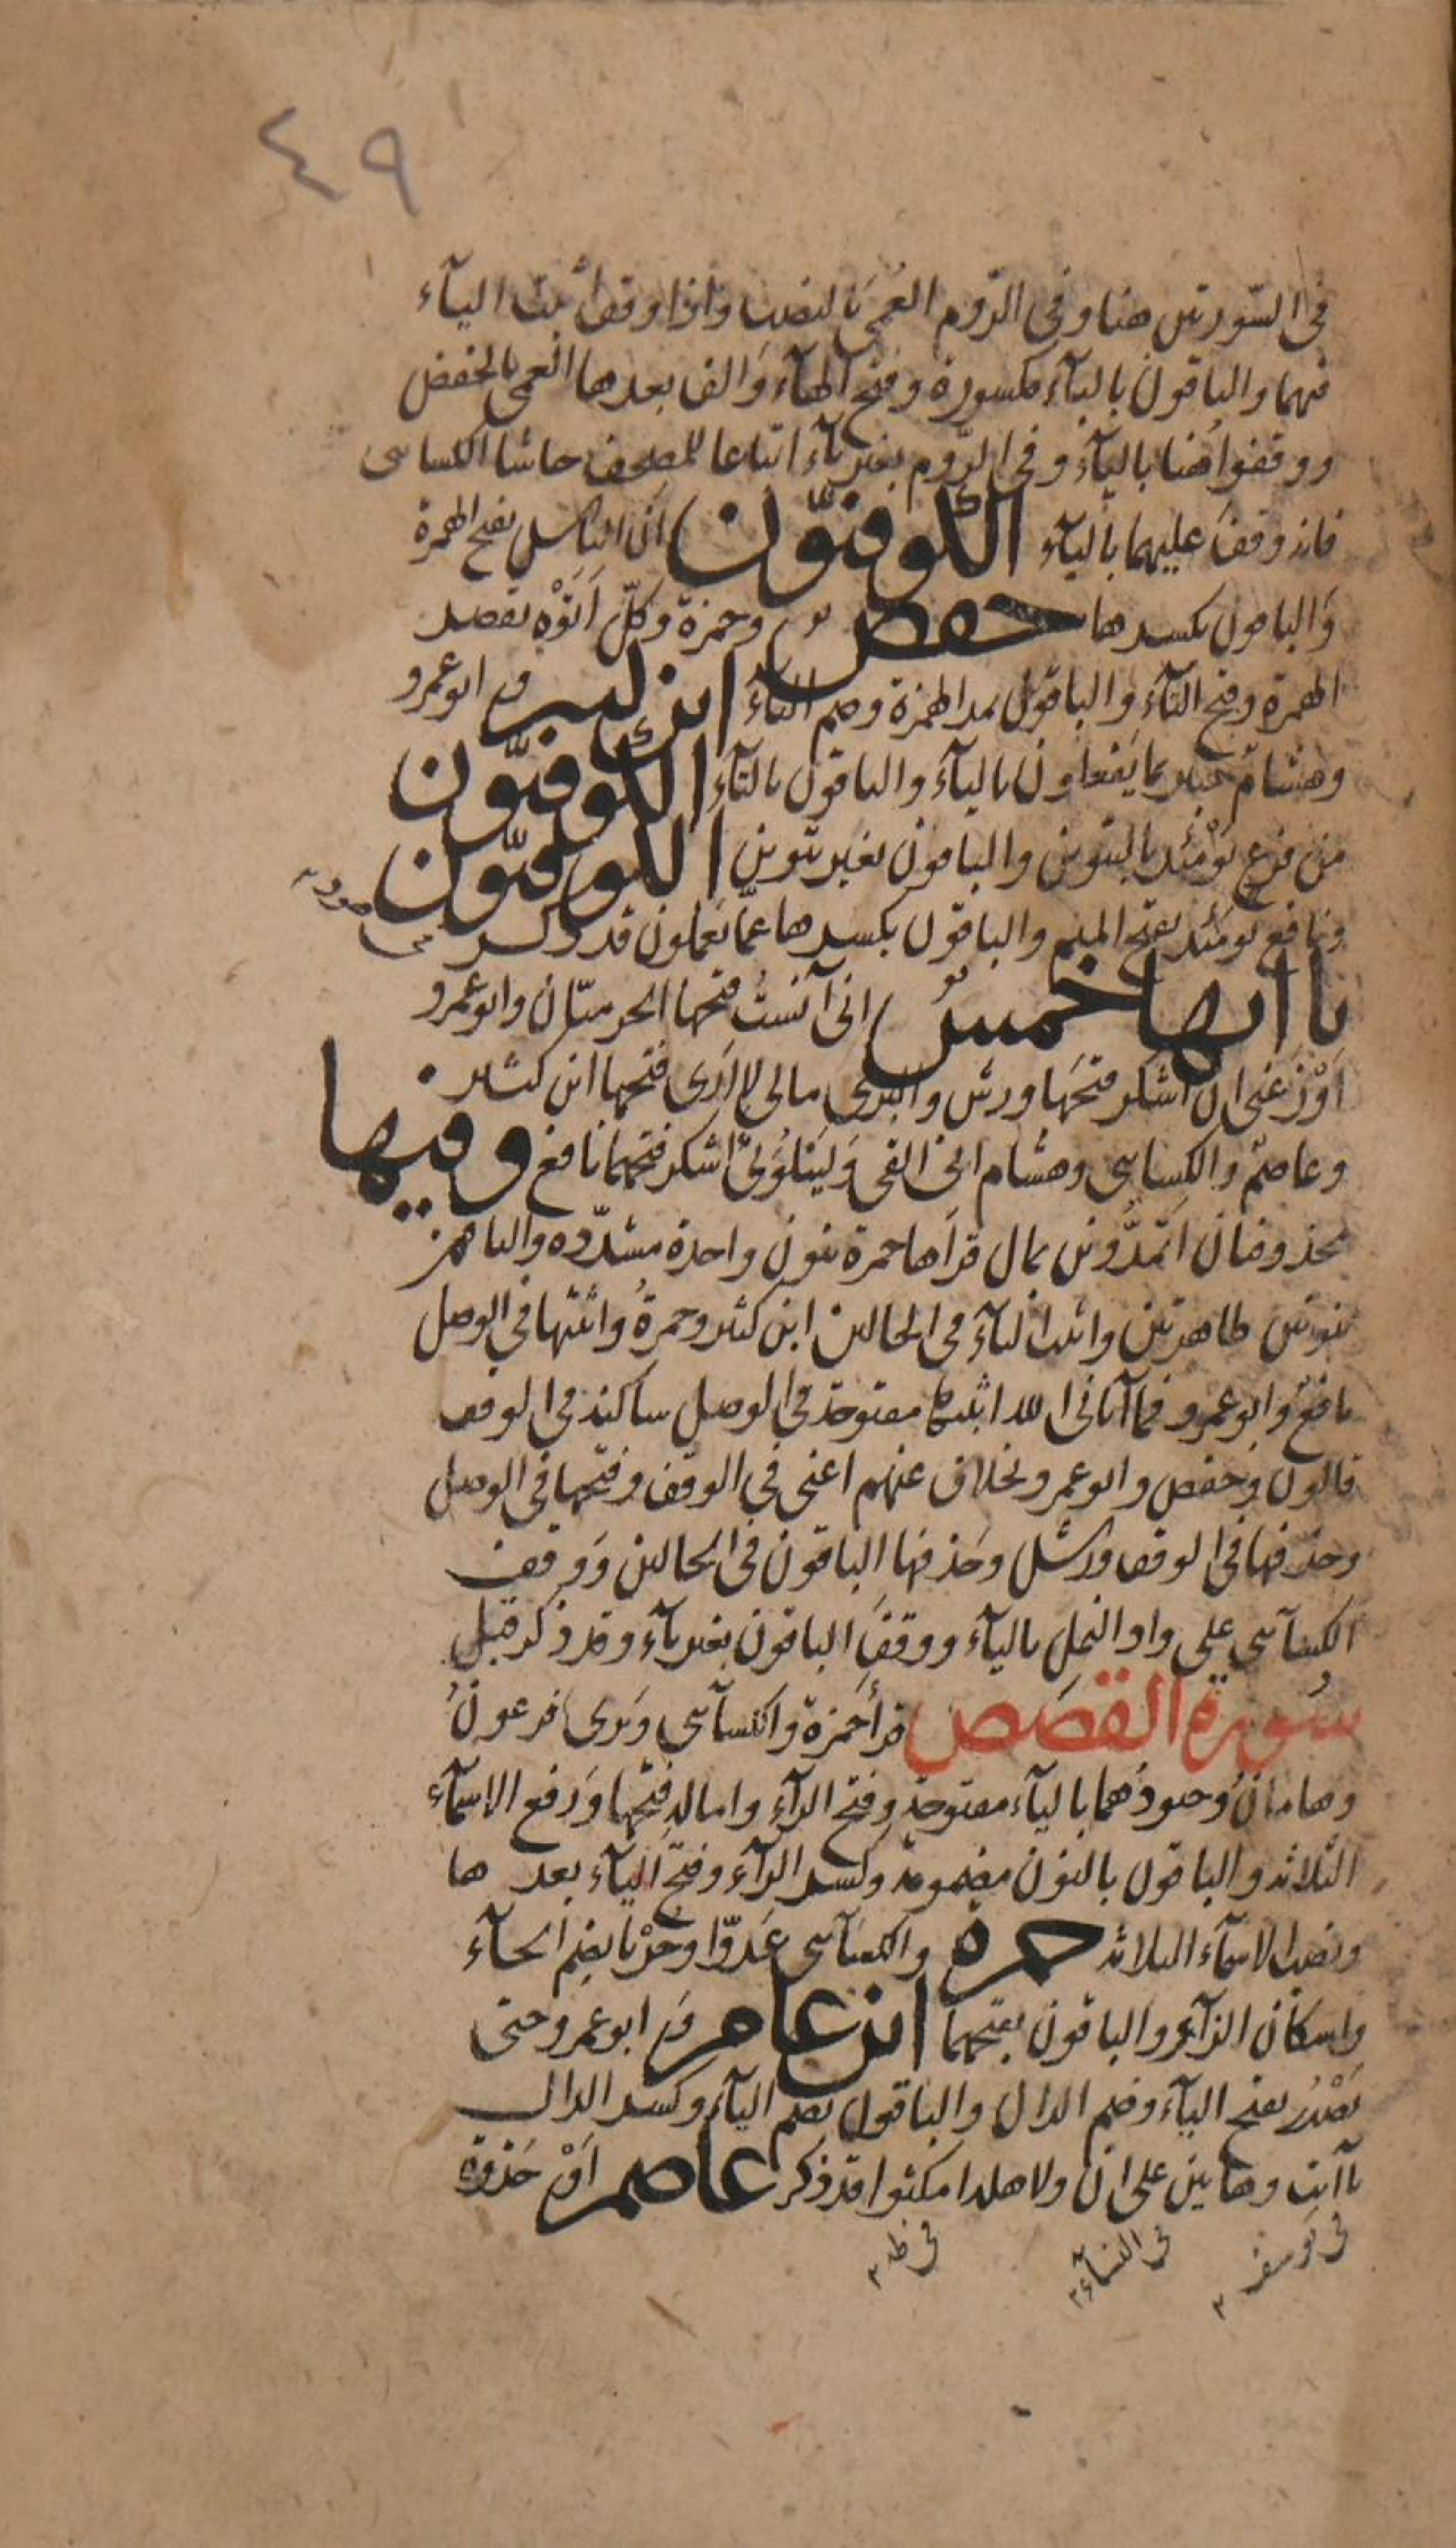 ٤٩
فى السّورتين هنا وفى الرّوم العُمىَ بالنصب واذا وقف أثبت اليآء
فيهما والباقون بالبآء مكسورة وفتح الهآء والف بعدها العمى بالخفض
ووقفوا هُنا باليآء وفى الرّوم بغير يآء اتباعا للمصحف حاشا الكساىى
فانه وقفَ عليهما باليآء الكوفيّون انّ الناس بفتح الهمزة
وَالباقون بكسرها حفص وحمزة وَكلّ أَتَوْهُ بقصر
الهمزة وفتح التآء والباقون بمد الهمزة وضم التآء ابن كثير و ابو عمرو
وهشامٌ خبير بما يَفعلون باليآء والباقون بالتآء الكوفيّون
من فزع يَوْمَئذٍ بالتنوين والباقون بغير تنوين الكوفيّون
ونافع يومئذ بفتح الميم والباقون بكسرها عمّا تعملون قد ذكر
فى هود
يا اتها خمسٌ انى آنستُ فتحها الحرميّان وابو عمرو
اَوْزِعنى ان اشكر فتحَها ورش والبزى مالى لا ارَى فتحها ابن كثير
وعاصمٌ والكساىى وهشام انى القى وَليَبْلُوَنىْ اشكر فتحهما نافع وفيها
محذوفتان اَتُمدُّونن بمال قرأها حمزة بنون واحدة مشدّده والباقون
بنونين ظاهرتين واثبت اليآء فى الحالين ابن كثير وحمزةُ واثبتها فى الوصل
نافعٌ وابو عمرو فما آتانى الله اثبتها مفتوحة فى الوصل ساكنة فى الوقف
قالون وحفص وابو عمرو بخلاف عنهم اعنى فى الوقف وفتحها فى الوصل
وحذفها فى الوقف ورش وحَذفها الباقون فى الحالين وَوقف
الكسآىى على واد النمل باليآء ووقفَ الباقون بغير يآء وقد ذكر قبل
سُورة القصَص قرأ حَمزة والكسآىى وَيَرى فرعونُ
وهامانُ وجنودُهما باليآء مفتوحة وفتح الرآء وامالة فتحها وَرفع الاسمآء
الثلاثة والباقون بالنون مضمومة وكسر الرآء وفتح اليآء بعدها
ونصب الاسمآء الثلاثة حمزة والكسآىى عَدوّا وحُزْنا بضم الحآء
واسكان الزآء والباقون بفتحهما ابن عامر و ابو عمرو حتى
يَصْدُر بفتح اليآء وضم الدال والباقون بضم اليآء وكسر الدال
يآ ابت وهاتين على ان ولاهله امكثوا قد ذكر عاصم اَوْ جَذوة
فى يوسف فى النسآء فى طه